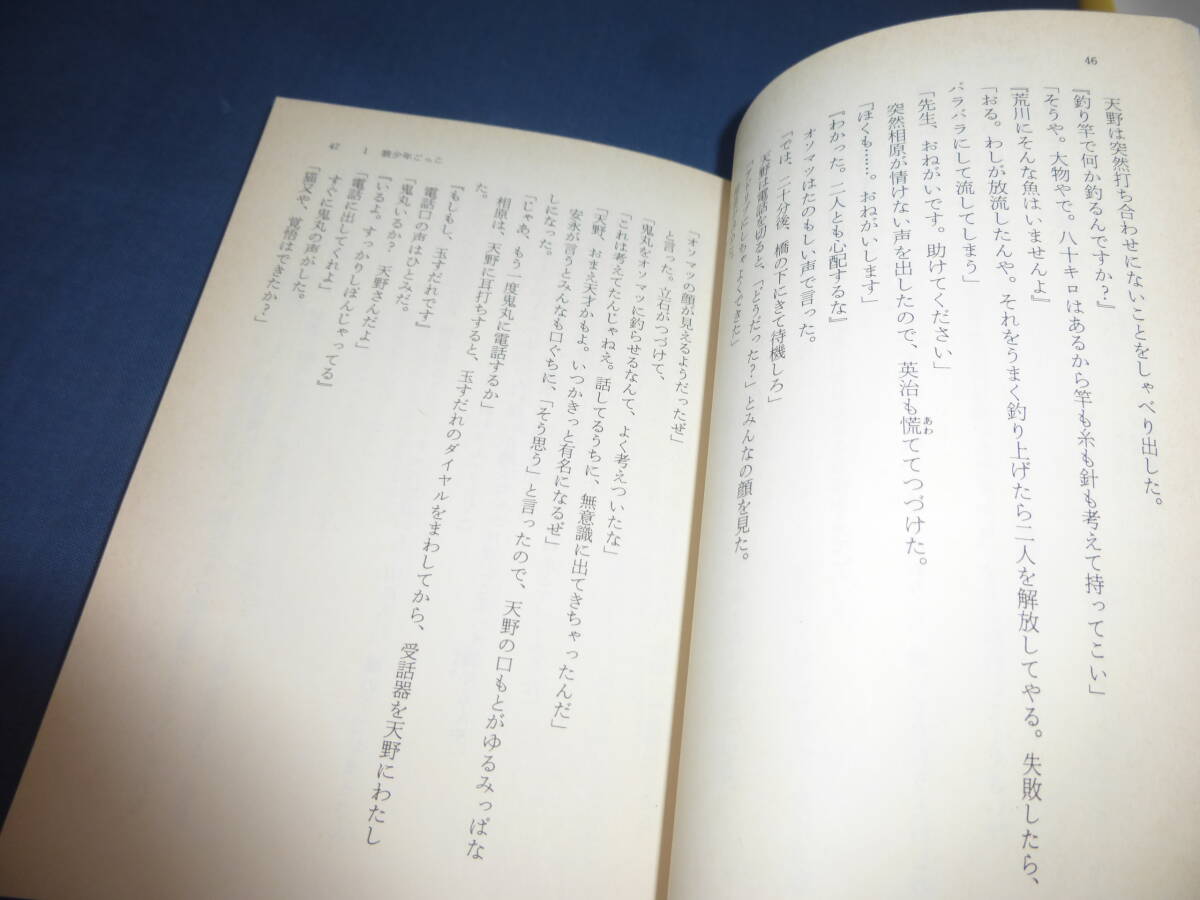 46
天野は突然打ち合わせにないことをしゃべり出した。
『釣り竿で何か釣るんですか？』
「そうや。大物やで。八十キロはあるから竿も糸も針も考えて持ってこい」
『荒川にそんな魚はいませんよ』
「おる。わしが放流したんや。それをうまく釣り上げたら二人を解放してやる。失敗したら、
バラバラにして流してしまう」
「先生、おねがいです。助けてください」
突然相原が情けない声を出したので、英治も慌ててつづけた。
あわ
「ぼくも……。おねがいします」
『わかった。二人とも心配するな』
オソマツはたのもしい声で言った。
「では、二十分後、橋の下にきて待機しろ」
天野は電話を切ると、「どうだった？」とみんなの顔を見た。
「アドリブにしちゃよくできた」
47 1 殺少年ごっこ
「オソマツの顔が見えるようだったぜ」
と言った。立石がつづけて、
「鬼丸をオソマツに釣らせるなんて、よく考えついたな」
「これは考えてたんじゃねえ。話してるうちに、無意識に出てきちゃったんだ」
「天野、おまえ天才かもよ。いつかきっと有名になるぜ」
安永が言うとみんなも口ぐちに、「そう思う」と言ったので、天野の口もとがゆるみっぱな
しになった。
「じゃあ、もう一度鬼丸に電話するか」
相原は、天野に耳打ちすると、玉すだれのダイヤルをまわしてから、受話器を天野にわたし
た。
『もしもし、玉すだれです』
電話口の声はひとみだ。
「鬼丸いるか？　天野さんだよ」
『いるよ。すっかりしぼんじゃってる』
「電話に出してくれよ」
すぐに鬼丸の声がした。
「猫又や、覚悟はできたか？」